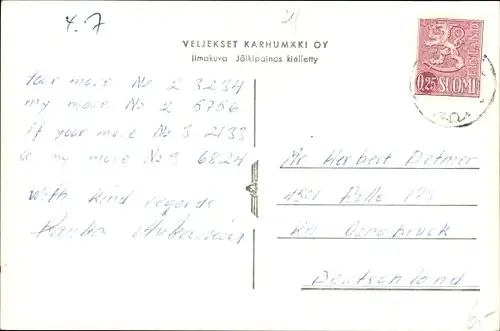 4.7
VELJEKSET KARHUMÄKI OY
Ilmakuva Jälkipainos kielletty
0.25 SUOMI
FINLAND
Your move No 2 3234
my move No 2 5756
if your move No 3 2133
so my move No 3 6824
with kind regards
Mr Herbert Detmer
4501 Belle 178
Kr. Osnabrück
Deutschland
6,-